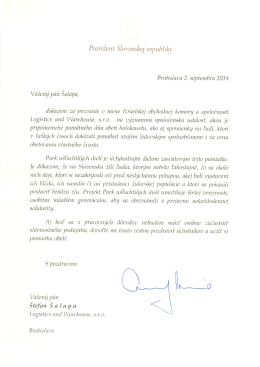 Prezident Slovenskej republiky
Bratislava 2. septembra 2014
Vážený pán Šalapa,
ďakujem za pozvanie v mene Izraelskej obchodnej komory a spoločnosti
Logistics and Warehouse, s.r.o. na významnú spoločenskú udalosť, akou je
pripomenutie pamätného dňa obetí holokaustu, ako aj spomienky na ľudí, ktorí
v ťažkých časoch dokázali pomáhať svojim židovským spoluobčanom i za cenu
obetovania vlastného života.
Park ušľachtilých duší je úctyhodným dielom zasväteným tejto pamiatke.
Je dôkazom, že na Slovensku žili ľudia, ktorým nebolo ľahostajné, čo sa okolo
nich deje, ktorí si nezakrývali oči pred neslýchaným potupou, akej boli vystavení
ich blízki, ich susedia či iní príslušníci židovskej populácie a ktorí sa pokúsili
postaviť hrádzu zlu. Projekt Park ušľachtilých duší umožňuje širšej verejnosti,
osobitne mladým generáciám, aby sa oboznámili s prejavmi nekaždodennej
solidarity.
Aj keď sa z pracovných dôvodov nebudem môcť osobne zúčastniť
slávnostného podujatia, dovoľte mi touto cestou pozdraviť účastníkov a uctiť si
pamiatku obetí.
S pozdravom
Vážený pán
Štefan Šalapa
Logistics and Warehouse, s.r.o.
Bratislava